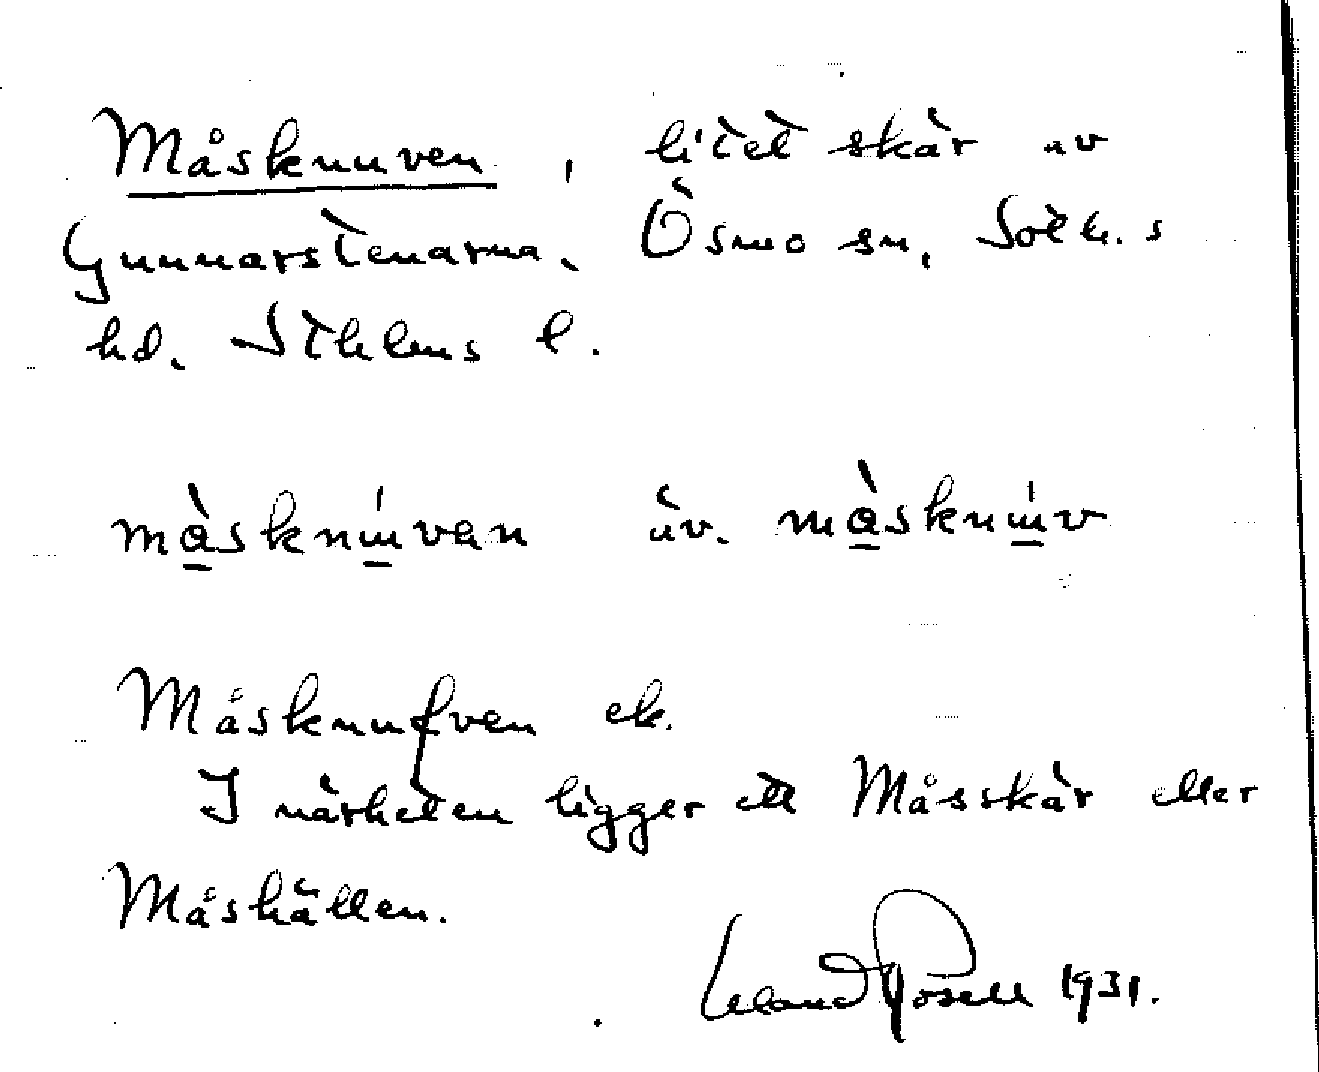 Måsknuven, litet skär av
Gunnarstenarna, Ösmo sn, Soth. s
hd. Sthlms l.
måsknu̇van äv. måsknu̇v
Måsknufven ek.
I närheten ligger ett Måsskär eller
Måshällen.
Erland Rosell 1931.